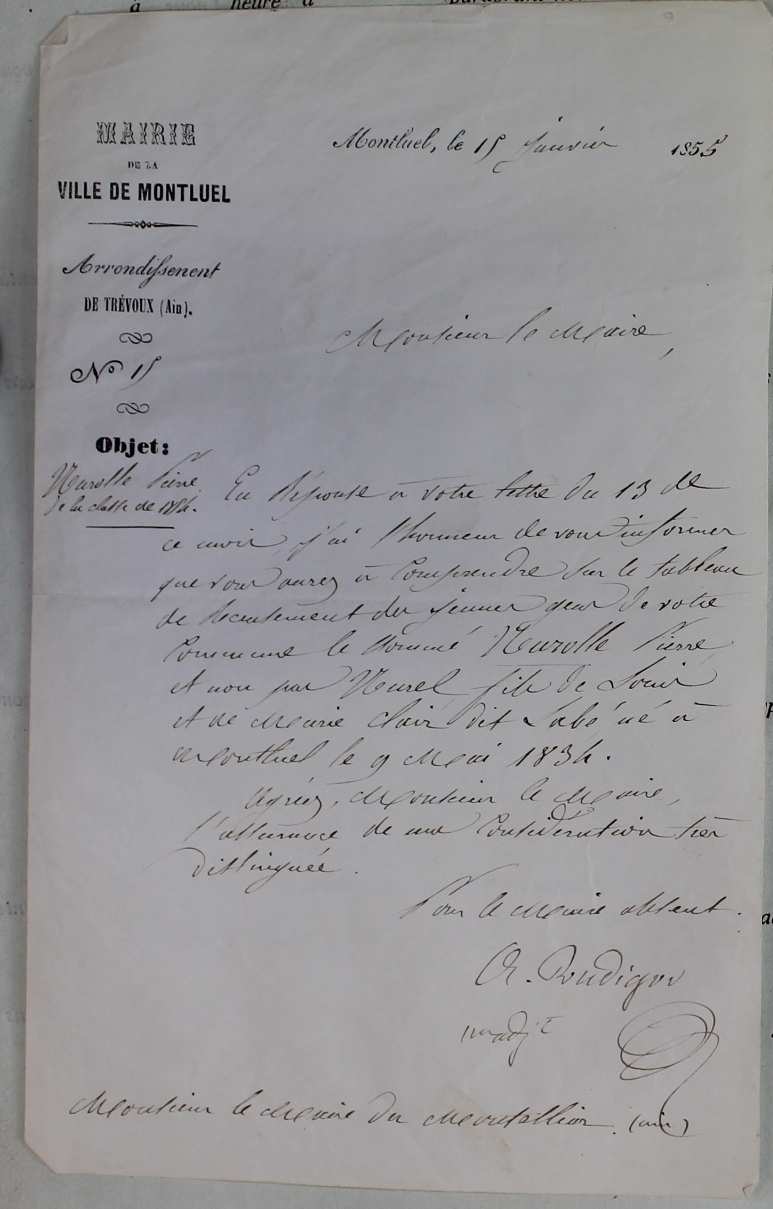 à heure à
MAIRIE
DE LA
VILLE DE MONTLUEL
Montluel, le 15 Janvier 1855
Arrondissement
DE TRÉVOUX (Ain).
N° 15
Monsieur le Maire,
Objet:
Pierre
de la classe de 1854.
En Réponse à votre lettre du 13 de
ce mois, j'ai l'honneur de vous informer
que vous aurez à Comprendre sur le tableau
de Recensement des jeunes gens de votre
Commune le nommé Pierre,
et non pas fils de Louis
et de Marie Clair dit Labé né à
Montluel le 9 Mai 1834.
Agréez, Monsieur le Maire,
l'assurance de ma Considération très
distinguée.
Pour le Maire absent.
Ch.
1er adjt
Monsieur le Maire du Montellier (ain)